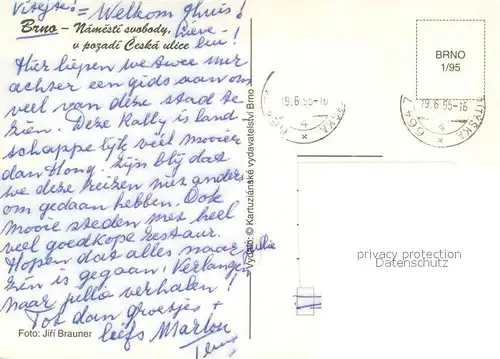 Vitejte! = Welkom thuis!
Brno – Náměstí svobody, Lieve -
v pozadí Česká ulice
Hier liepen we twee uur
achter een gids aan om
veel van deze stad te
zien. Deze Rally is land-
schappelijk veel mooier
dan Hong. Zijn blij dat
we deze reizen niet anders
om gedaan hebben. Ook
mooie steden met heel
veel goedkope restaur.
Hopen dat alles naar jullie
zin is gegaan. Verlangen
naar jullie verhalen!
Tot dan groetjes +
liefs Marlou
Foto: Jiří Brauner
Vydalo: © Kartuziánské vydavatelství Brno
BRNO
1/95
19.6.95-16
4
19.6.95-16
4
privacy protection
Datenschutz